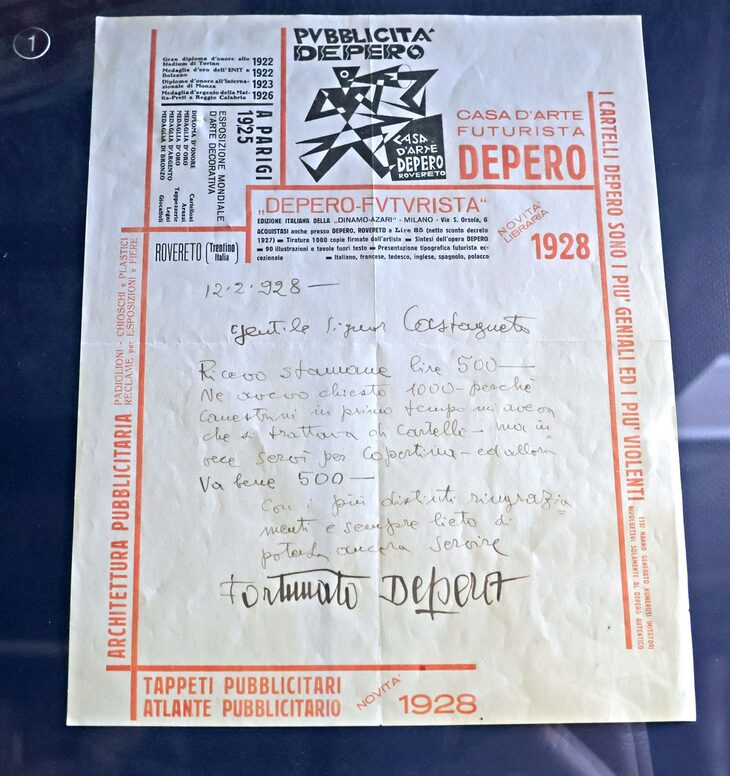 1
PVBBLICITÀ
DEPERO
Gran diploma d'onore allo
Stadium di Torino 1922
Medaglia d'oro dell'ENIT a
Bolzano 1922
Diploma d'onore all'Interna-
zionale di Monza 1923
Medaglia d'argento della Mat-
tia-Preti a Reggio Calabria 1926
A PARIGI
1925
ESPOSIZIONE MONDIALE
D'ARTE DECORATIVA
DIPLOMA D'ONORE Cartelloni
MEDAGLIA D'ORO Arazzi
MEDAGLIA D'ORO Tappezzerie
MEDAGLIA D'ARGENTO Legni
MEDAGLIA DI BRONZO Giocattoli
CASA
D'ARTE
DEPERO
ROVERETO
CASA D'ARTE
FUTURISTA
DEPERO
„DEPERO-FVTVRISTA"
EDIZIONE ITALIANA DELLA „DINAMO-AZARI" - MILANO - Via S. Orsola, 6
ACQUISTASI anche presso DEPERO, ROVERETO a Lire 85 (netto sconto decreto
1927) - Tiratura 1000 copie firmate dall'artista - Sintesi dell'opera DEPERO
- 90 illustrazioni e tavole fuori testo - Presentazione tipografica futurista ec-
cezionale - Italiano, francese, tedesco, inglese, spagnolo, polacco
NOVITA'
LIBRARIA
1928
ROVERETO (Trentino Italia)
12.2.928—
Gentile Signor Castagneto
Ricevo stamane lire 500—
Ne avevo chiesto 1000— perchè
Canestrini in primo tempo mi aveva
che si trattava di Cartello— ma in
vece servì per Copertina— ed allora
Va bene 500—
Con i più distinti ringrazia
menti e sempre lieto di
poterla ancora servire
Fortunato Depero
PADIGLIONI - CHIOSCHI e PLASTICI
RECLAME per ESPOSIZIONI e FIERE
ARCHITETTURA PUBBLICITARIA
I CARTELLI DEPERO SONO I PIU' GENIALI ED I PIU' VIOLENTI
ESSI HANNO GENERATO NUMEROSI IMITATORI
RIVOLGETEVI SOLAMENTE AL DEPERO AUTENTICO
TAPPETI PUBBLICITARI
ATLANTE PUBBLICITARIO
NOVITA'
1928